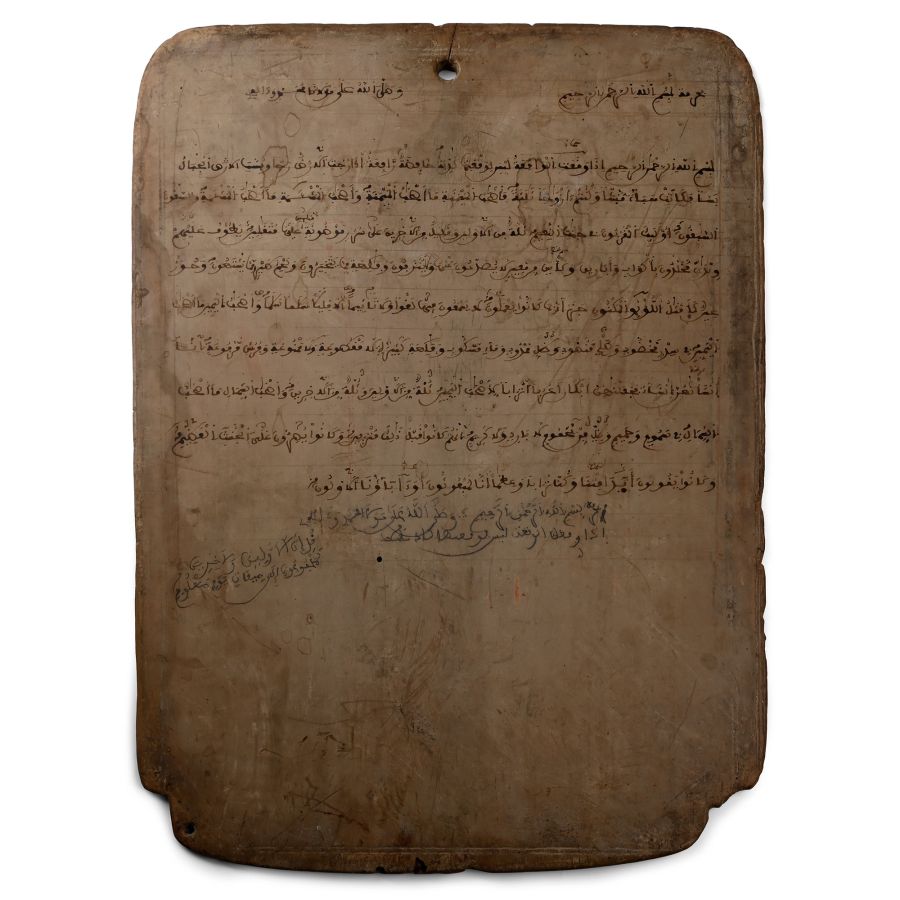 بسم الله الرحمن الرحيم وصلى الله على
بسم الله الرحمن الرحيم اذا وقعت الواقعة ليس لوقعتها كاذبة خافضة رافعة اذا رجت الارض رجا وبست الجبال
بسا فكانت هباء منبثا وكنتم ازوجا ثلثة فاصحب الميمنة ما اصحب الميمنة واصحب المشئمة ما اصحب المشئمة والسبقون
السبقون اوليك المقربون في جنت النعيم ثلة من الاولين وقليل من الاخرين على سرر موضونة متكئين عليها متقبلين يطوف عليهم
ولدن مخلدون باكواب واباريق وكاس من معين لا يصدعون عنها ولا ينزفون وفكهة مما يتخيرون ولحم طير مما يشتهون وحور
عين كامثل اللؤلؤ المكنون جزاء بما كانوا يعملون لا يسمعون فيها لغوا ولا تاثيما الا قيلا سلما سلما واصحب اليمين ما اصحب
اليمين في سدر مخضود وطلح منضود وظل ممدود وماء مسكوب وفكهة كثيرة لا مقطوعة ولا ممنوعة وفرش مرفوعة انا
انشانهن انشاء فجعلنهن ابكارا عربا اترابا لاصحب اليمين ثلة من الاولين وثلة من الاخرين واصحب الشمال ما اصحب
الشمال في سموم وحميم وظل من يحموم لا بارد ولا كريم انهم كانوا قبل ذلك مترفين وكانوا يصرون على الحنث العظيم
وكانوا يقولون ايذا متنا وكنا ترابا وعظما انا لمبعوثون او اباؤنا الاولون
بسم الله الرحمن الرحيم وصلى الله على
اذا وقعت الواقعة ليس لوقعتها كاذبة
قل ان الاولين والاخرين
لمجموعون الى ميقات يوم معلوم